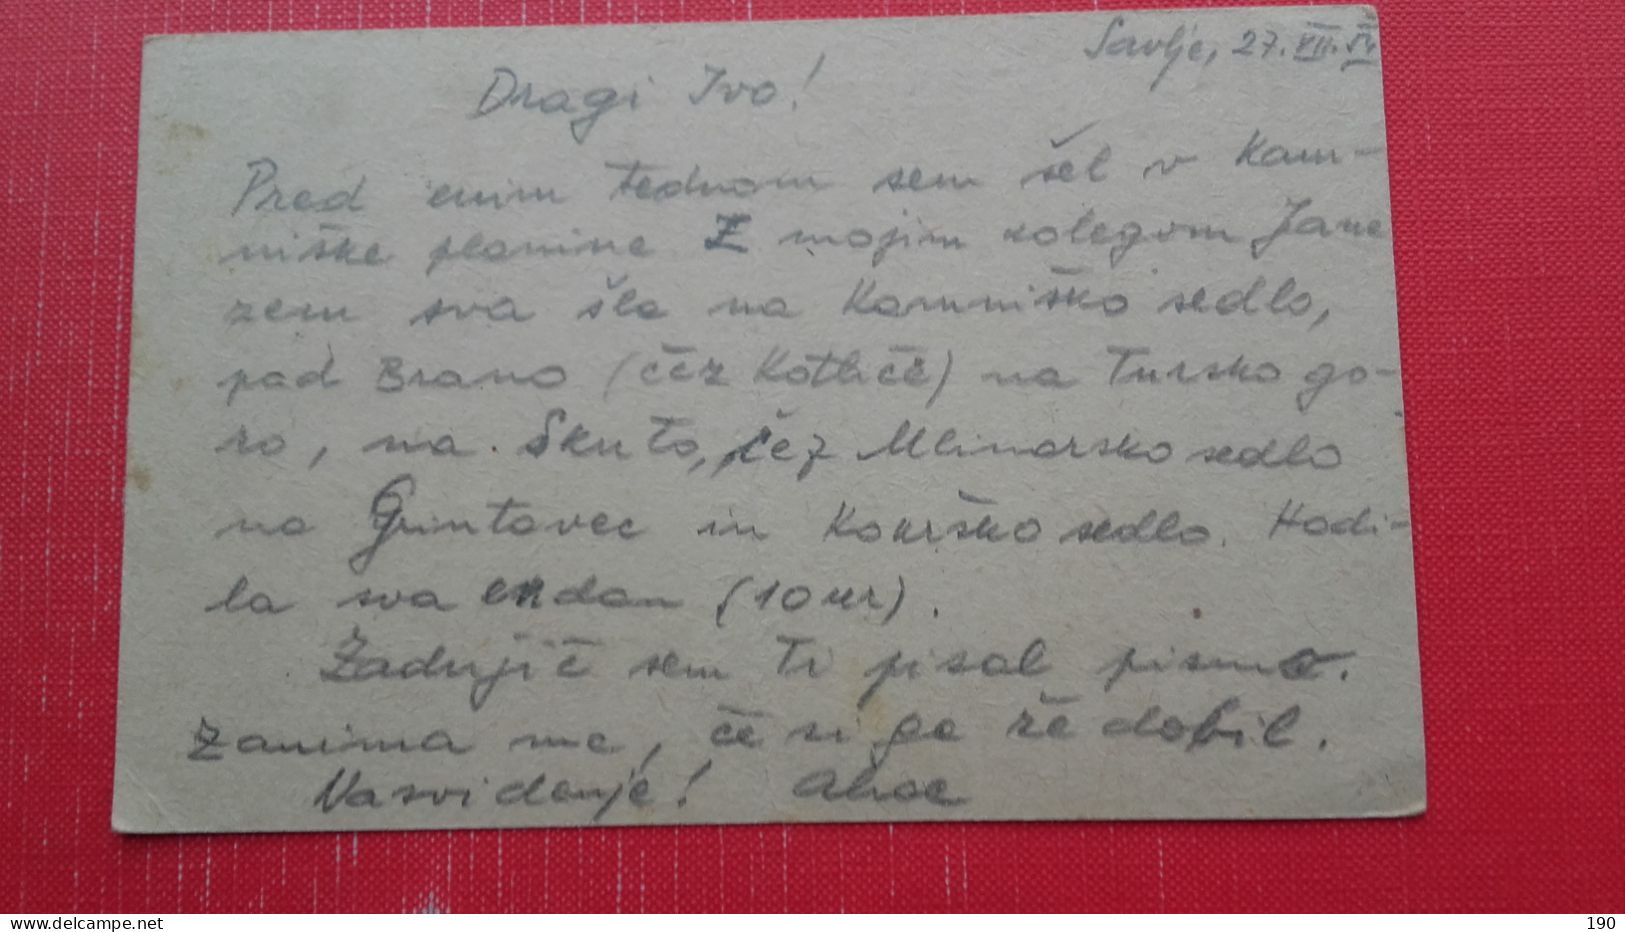 Savlje, 27. VII.
Dragi Ivo!
Pred enim tednom sem šel v Kam-
niške planine Z mojim kolegom Jane
zem sva šla na Kamniško sedlo,
pod Brano (čez Kotliče) na Tursko go-
ro, na Skuto, čez Mlinarsko sedlo
na Grintovec in Kokrško sedlo. Hodi-
la sva en dan (10 ur).
Zadnjič sem ti pisal pismo.
Zanima me, če si ga že dobil.
Nasvidenje!
190